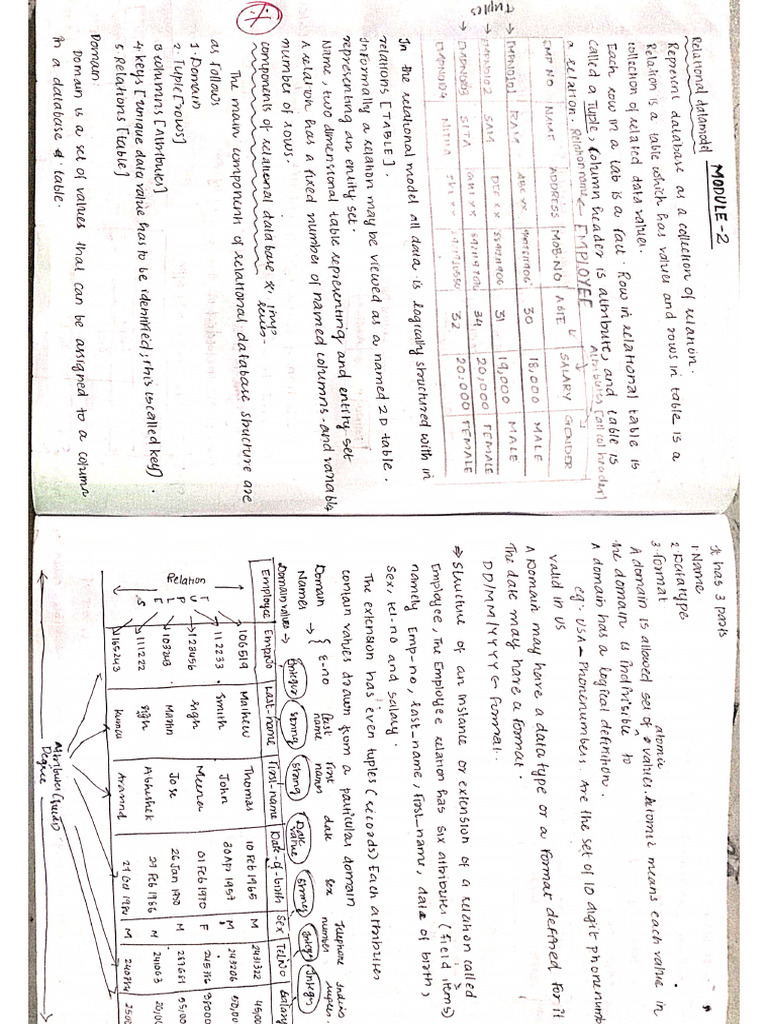 MODULE-2
Relational datamodel
Represent database as a collection of relation.
Relation is a table which has values and rows in table is a
collection of related data values.
Each row in a tab is a fact. Row in relational table is
called a Tuple, column header is attribute, and table is
a relation. Relation name EMPLOYEE Attributes
EMP NO NAME ADDRESS MOB-NO AGE SALARY GENDER
EMPNO101 RAM 30 18,000 MALE
EMPNO102 SAM 31 19,000 MALE
EMPNO103 SITA 34 20,000 FEMALE
EMPNO104 NITHA 32 20,000 FEMALE
Tuples
In the relational model all data is logically structured with in
relations [TABLE].
Informally a relation may be viewed as a named 2D table.
Name, two dimensional table representing and entity set
representing an entity set.
A relation has a fixed number of named columns and variable
number of rows.
components of relational database
The main components of relational database structure are
as follows
1. Domain
2. Tuple [rows]
3 columns [Attributes]
4. keys [unique data value has to be identified, this is called key].
5 Relations [table]
Domain:
Domain is a set of values that can be assigned to a column
in a database & table.
It has 3 parts
1. Name
2. Datatype
3. format
A domain is allowed set of atomic values. Atomic means each value in
the domain is indivisible to
A domain has a logical definition.
eg: USA - Phonenumbers Are the set of 10 digit phone num
valid in US
A Domain may have a data type or a format defined for it
The date may have a format.
DD/MM/YYYY ← format.
⇒ Structure of an instance or extension of a relation called
Employee, The Employee relation has six attributes (field items)
namely Emp-no, last_name, first_name, date of birth,
Sex, tel-no and salary.
The extension has even tuples (records) Each attributes
contain values drawn from a particular domain
Domain Names → { E-no last name first names date sex Telephone number
Domain values → Integer string strong Date value strong Integer Integer
Employee Empno Last-name First-name Date-of-birth Sex Telno Salary
106519 Mathew Thomas 10 Feb 1965 M 2431322
112233 Smith John 20 Apr 1957 M 243206
123456 sigh Meena 01 Feb 1970 F
103243 Martin Jose 26 Jan 1970 M
111222 sigh Abhishek 29 Feb 1986 M 241063
165243 Kumar Aravind M
Relation
TUPLES
Attributes (fields)
Degree